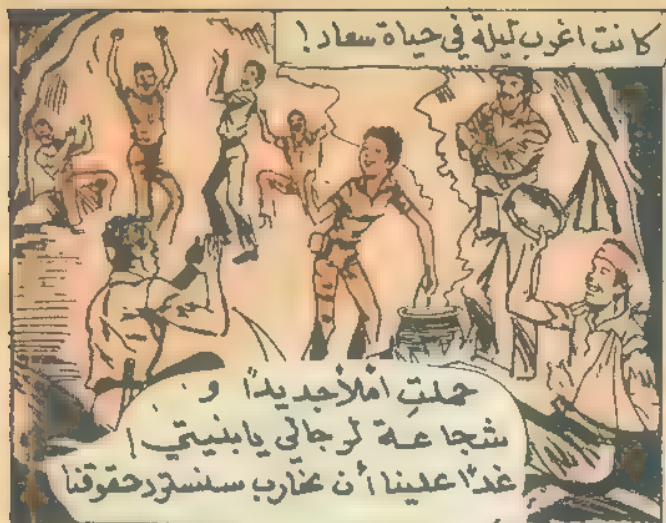 كانت اغرب ليلة في حياة سعاد !
حملتِ املاً جديدًا و
شجاعة لرجالي يا بنيتي !
غدًا علينا أن نحارب سنسترد حقوقنا